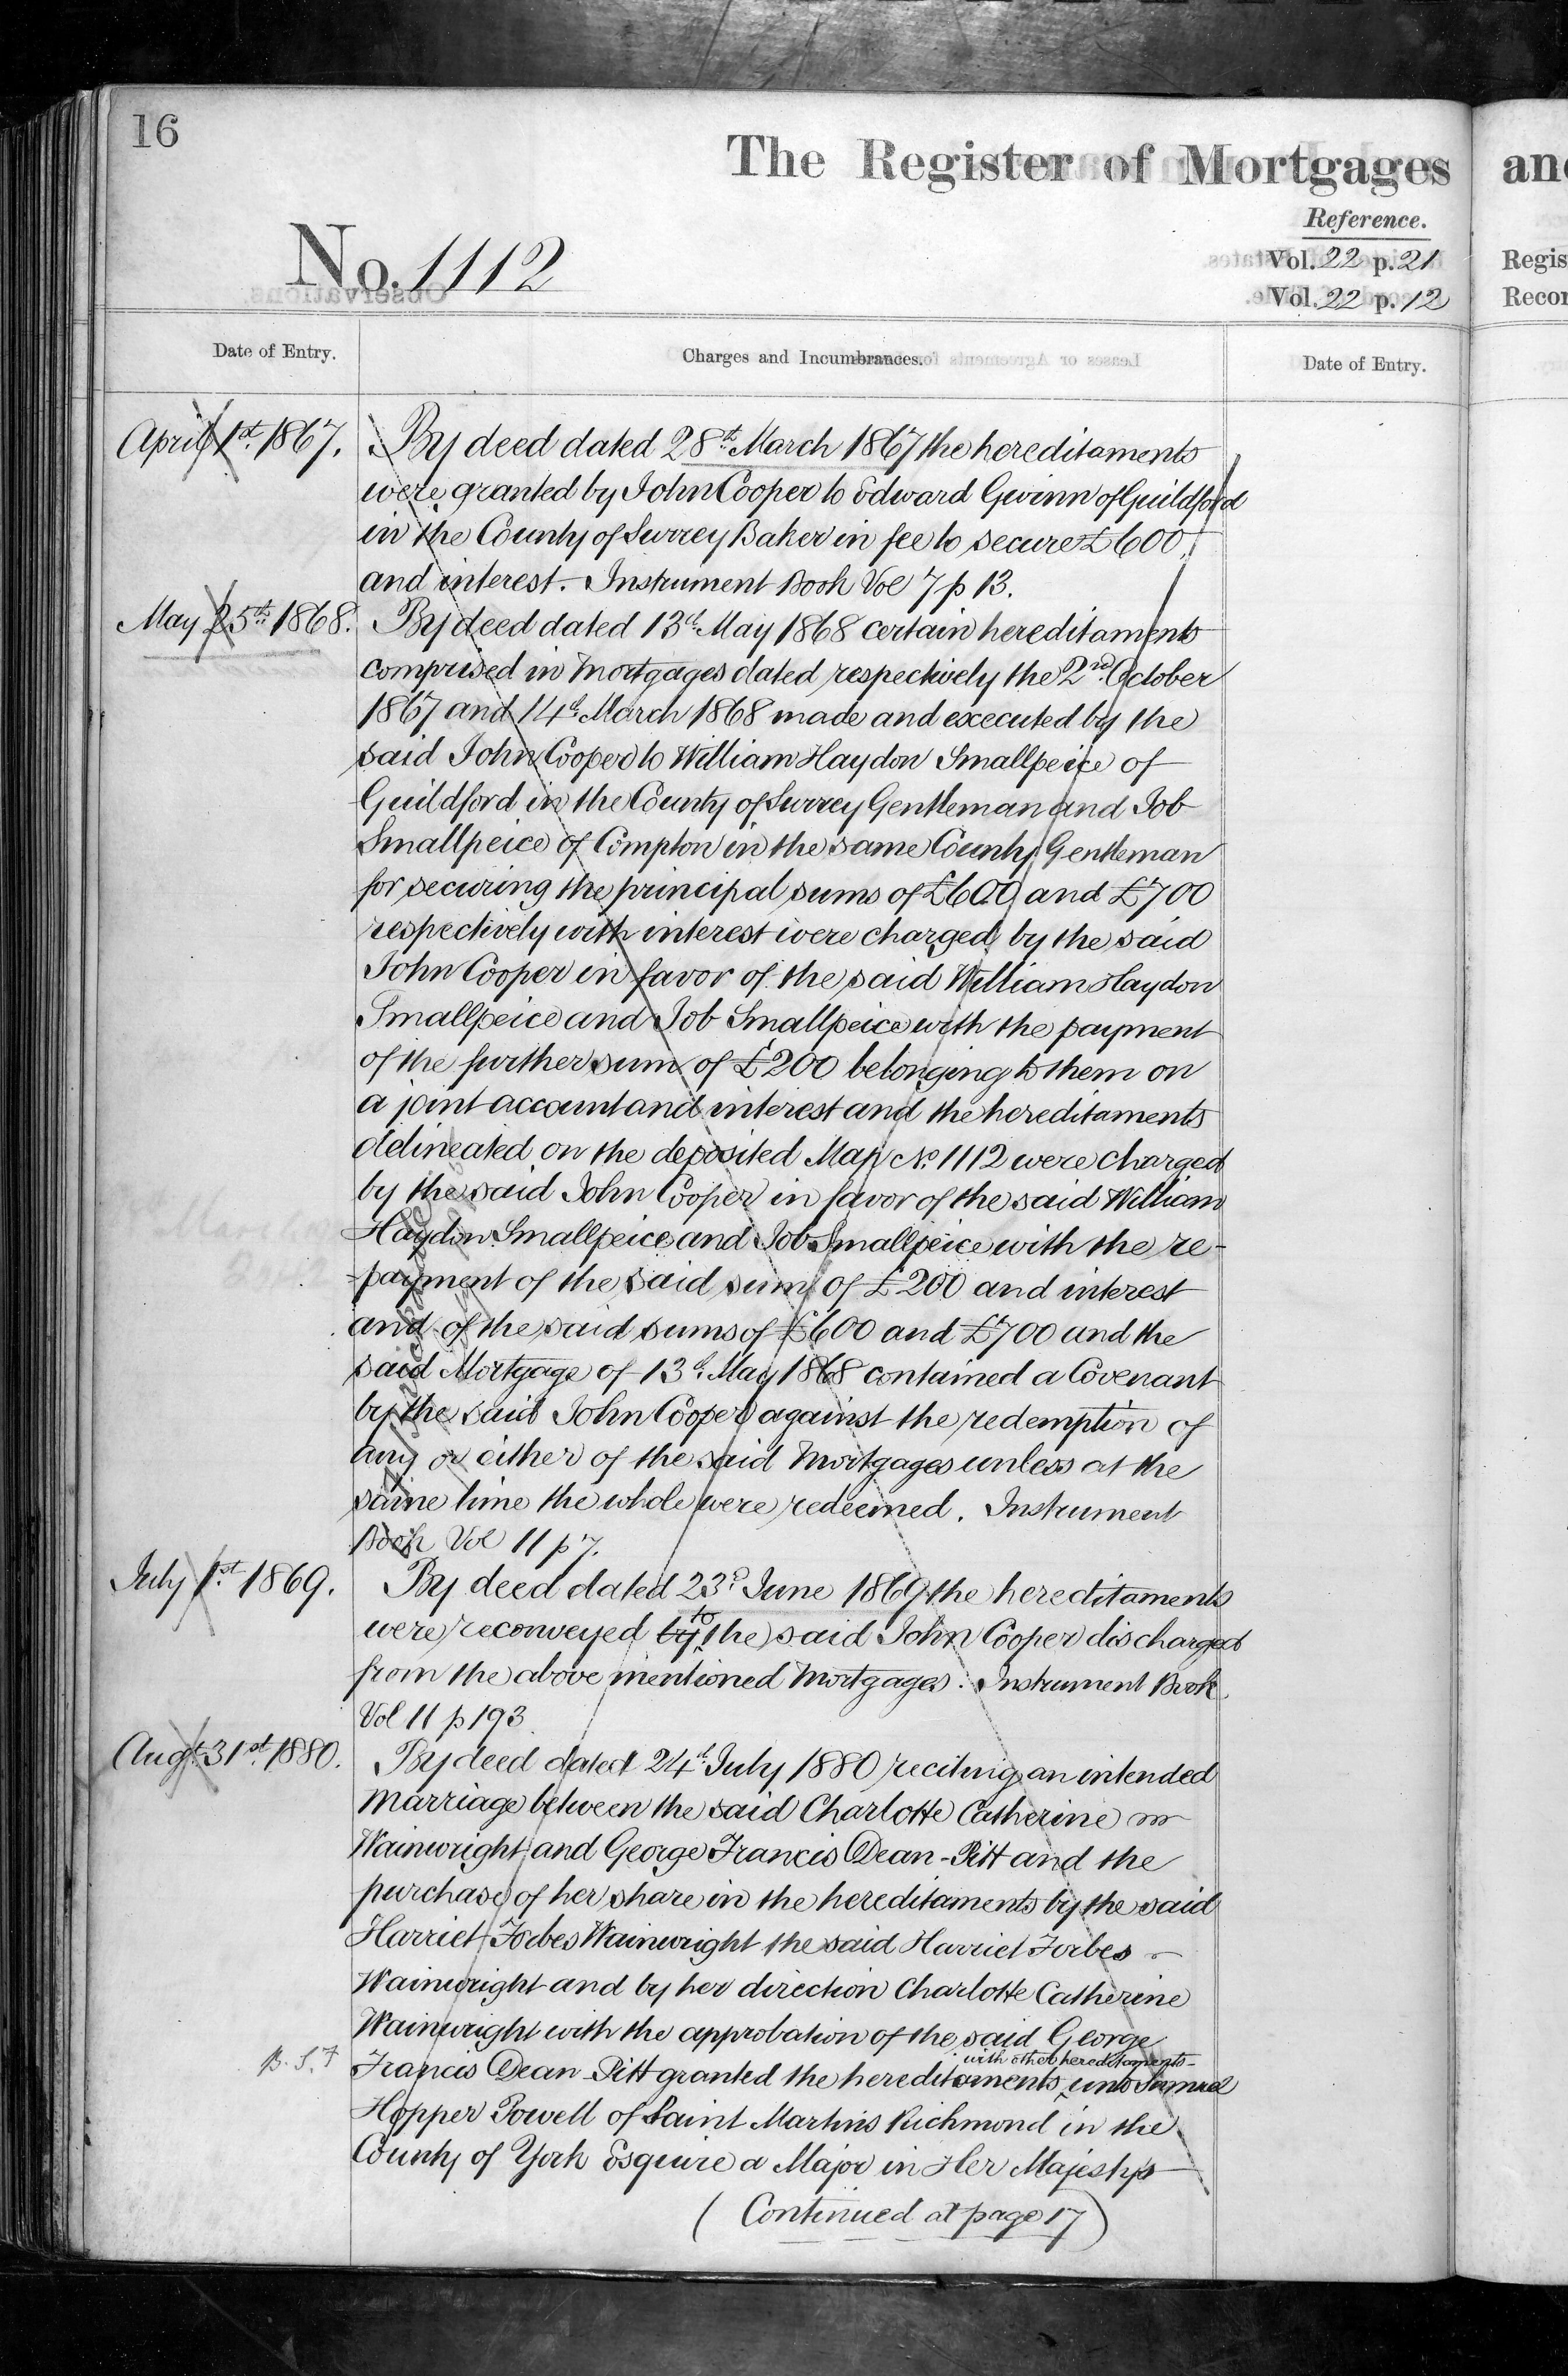 16
The Register of Mortgages
Reference.
No. 1112
Vol. 22 p. 21
Vol. 22 p. 12
Date of Entry.
Charges and Incumbrances.
Date of Entry.
April 1st 1867.
By deed dated 28th March 1867 the hereditaments
were granted by John Cooper to Edward Gwinn of Guildford
in the County of Surrey Baker in fee to secure £600
and interest. Instrument Book Vol 7 p 13.
May 25th 1868.
By deed dated 13th May 1868 certain hereditaments
comprised in Mortgages dated respectively the 2nd October
1867 and 14th March 1868 made and executed by the
said John Cooper to William Haydon Smallpeice of
Guildford in the County of Surrey Gentleman and Job
Smallpeice of Compton in the same County Gentleman
for securing the principal sums of £600 and £700
respectively with interest were charged by the said
John Cooper in favor of the said William Haydon
Smallpeice and Job Smallpeice with the payment
of the further sum of £200 belonging to them on
a joint account and interest and the hereditaments
delineated on the deposited Map No. 1112 were charged
by the said John Cooper in favor of the said William
Haydon Smallpeice and Job Smallpeice with the re-
-payment of the said sum of £200 and interest
and of the said sums of £600 and £700 and the
said Mortgage of 13th May 1868 contained a Covenant
by the said John Cooper against the redemption of
any or either of the said Mortgages unless at the
same time the whole were redeemed. Instrument
Book Vol 11 p 7.
July 1st 1869.
By deed dated 23d June 1869 the hereditaments
were reconveyed by to the said John Cooper discharged
from the above mentioned Mortgages. Instrument Book
Vol 11 p 193
Augt. 31st 1880.
By deed dated 24th July 1880 reciting an intended
Marriage between the said Charlotte Catherine
Wainwright and George Francis Dean-Pitt and the
purchase of her share in the hereditaments by the said
Harriet Forbes Wainwright the said Harriet Forbes
Wainwright and by her direction Charlotte Catherine
Wainwright with the approbation of the said George
B. S. F
Francis Dean-Pitt granted the hereditaments with other hereditaments unto Samuel
Hopper Powell of Saint Martins Richmond in the
County of York Esquire a Major in Her Majesty's
(Continued at page 17)